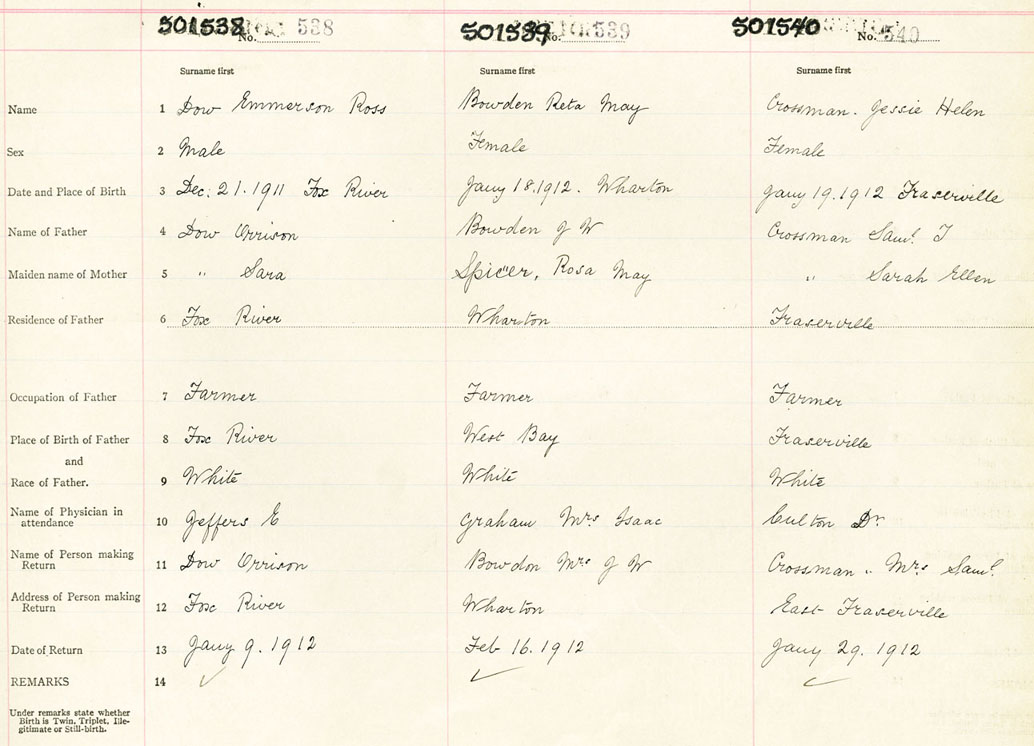 501538 No. 538 501539 No. 539 501540 No. 540
Surname first Surname first Surname first
Name 1 Dow Emmerson Ross Bowden Reta May Crossman. Jessie Helen
Sex 2 Male Female Female
Date and Place of Birth 3 Dec. 21. 1911 Fox River Jany 18. 1912. Wharton Jany 19. 1912 Fraserville
Name of Father 4 Dow Orrison Bowden J W Crossman Saml. T
Maiden name of Mother 5 " Sara Spicer, Rosa May " Sarah Ellen
Residence of Father 6 Fox River Wharton Fraserville
Occupation of Father 7 Farmer Farmer Farmer
Place of Birth of Father 8 Fox River West Bay Fraserville
and
Race of Father. 9 White White White
Name of Physician in
attendance 10 Jeffers E Graham Mrs Isaac Culton Dr
Name of Person making
Return 11 Dow Orrison Bowdon Mrs J W Crossman " Mrs Saml.
Address of Person making
Return 12 Fox River Wharton East Fraserville
Date of Return 13 Jany 9. 1912 Feb 16. 1912 Jany 29. 1912
REMARKS 14 ✓ ✓ ✓
Under remarks state whether
Birth is Twin, Triplet, Ille-
gitimate or Still-birth.